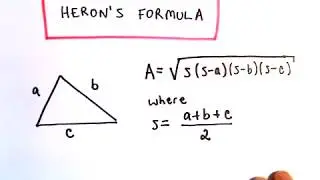 HERON'S FORMULA
A=√s(s-a)(s-b)(s-c)
where
s= a+b+c/2
a
b
c